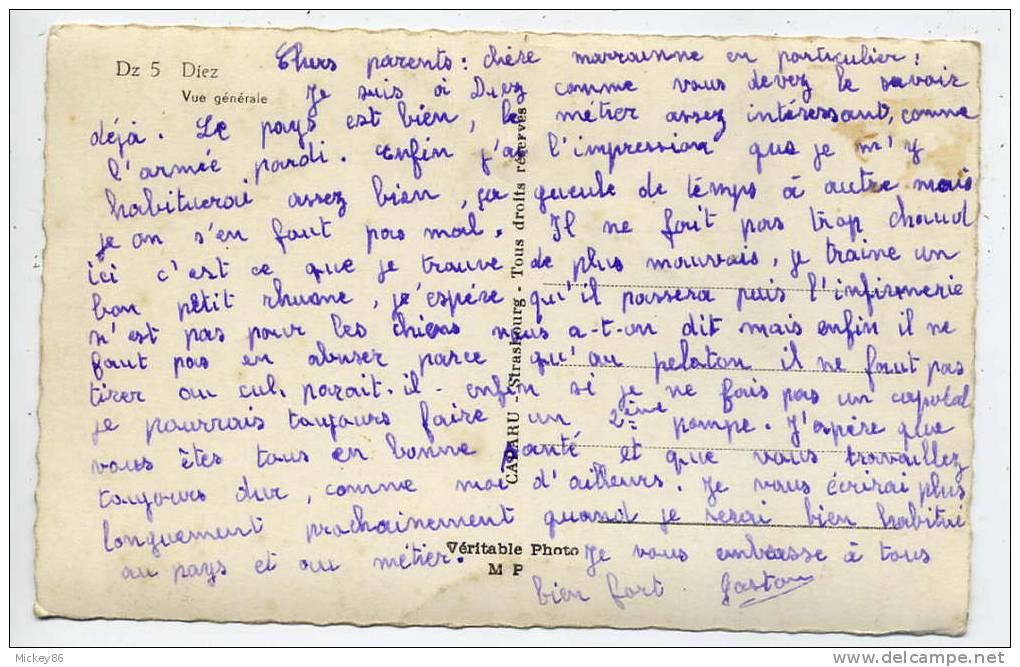 Dz 5 Diez
Vue générale
Chers parents : chère marrainne en particulier :
Je suis à Diez comme vous devez le savoir
déjà. Le pays est bien, le métier assez intéressant, comme
l'armée pardi. Enfin j'ai l'impression que je m'y
habituerai assez bien, ça gueule de temps à autre mais
je on s'en faut pas mal. Il ne fait pas trop chaud
ici c'est ce que je trouve de plus mauvais, je traine un
bon petit rhume, j'espére qu'il passera puis l'infirmerie
n'est pas pour les chiens nous a-t-on dit mais enfin il ne
faut pas en abuser parce qu'au peloton il ne faut pas
tirer au cul, parait-il - enfin si je ne fais pas un capotal
je pourrais toujours faire un 2ième pompe. J'espére que
vous êtes tous en bonne santé et que vous travaillez
toujours dur, comme moi d'ailleurs. Je vous écrirai plus
longuement prochainement quand je serai bien habitué
au pays et au métier. Je vous embrasse à tous
bien fort Gaston
CAP Strasbourg - Tous droits réservés
Véritable Photo
M P
Mickey86
delcampe.net